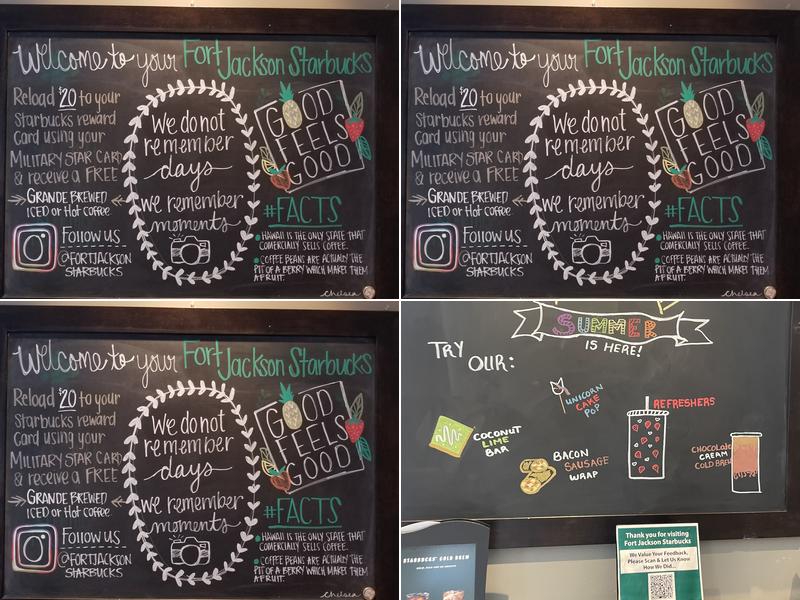 Welcome to your Fort Jackson Starbucks
Reload $20 to your
Starbucks reward
Card using your
MILITARY STAR CARD
& receive a FREE
GRANDE BREWED
ICED or Hot coffee
Follow us
@FORTJACKSON
STARBUCKS
We do not
remember
days
we remember
moments
GOOD
FEELS
GOOD
#FACTS
HAWAII IS THE ONLY STATE THAT
COMERCIALLY SELLS COFFEE.
COFFEE BEANS ARE ACTUALLY THE
PIT OF A BERRY WHICH MAKES THEM
A FRUIT.
Chelsea
Welcome to your Fort Jackson Starbucks
Reload $20 to your
Starbucks reward
Card using your
MILITARY STAR CARD
& receive a FREE
GRANDE BREWED
ICED or Hot coffee
Follow us
@FORTJACKSON
STARBUCKS
We do not
remember
days
we remember
moments
GOOD
FEELS
GOOD
#FACTS
HAWAII IS THE ONLY STATE THAT
COMERCIALLY SELLS COFFEE.
COFFEE BEANS ARE ACTUALLY THE
PIT OF A BERRY WHICH MAKES THEM
A FRUIT.
Chelsea
Welcome to your Fort Jackson Starbucks
Reload $20 to your
Starbucks reward
Card using your
MILITARY STAR CARD
& receive a FREE
GRANDE BREWED
ICED or Hot coffee
Follow us
@FORTJACKSON
STARBUCKS
We do not
remember
days
we remember
moments
GOOD
FEELS
GOOD
#FACTS
HAWAII IS THE ONLY STATE THAT
COMERCIALLY SELLS COFFEE.
COFFEE BEANS ARE ACTUALLY THE
PIT OF A BERRY WHICH MAKES THEM
A FRUIT.
Chelsea
SUMMER
IS HERE!
TRY
OUR:
UNICORN
CAKE
POP
REFRESHERS
COCONUT
LIME
BAR
BACON
SAUSAGE
WRAP
CHOCOLATE
CREAM
COLD BREW
STARBUCKS® COLD BREW
Thank you for visiting
Fort Jackson Starbucks
We Value Your Feedback,
Please Scan & Let Us Know
How We Did...